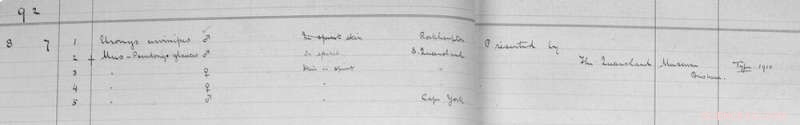 92
8 7 1 Uromys cervinipes ♂ In spirit skin Rockhampton Presented by
2 + Mus - Pseudomys glaucus ♂ In spirit S. Queensland The Queensland Museum Type 1910
3 " ♀ Skin in spirit " Brisbane.
4 " ♀ "
5 " ♂ " Cape York